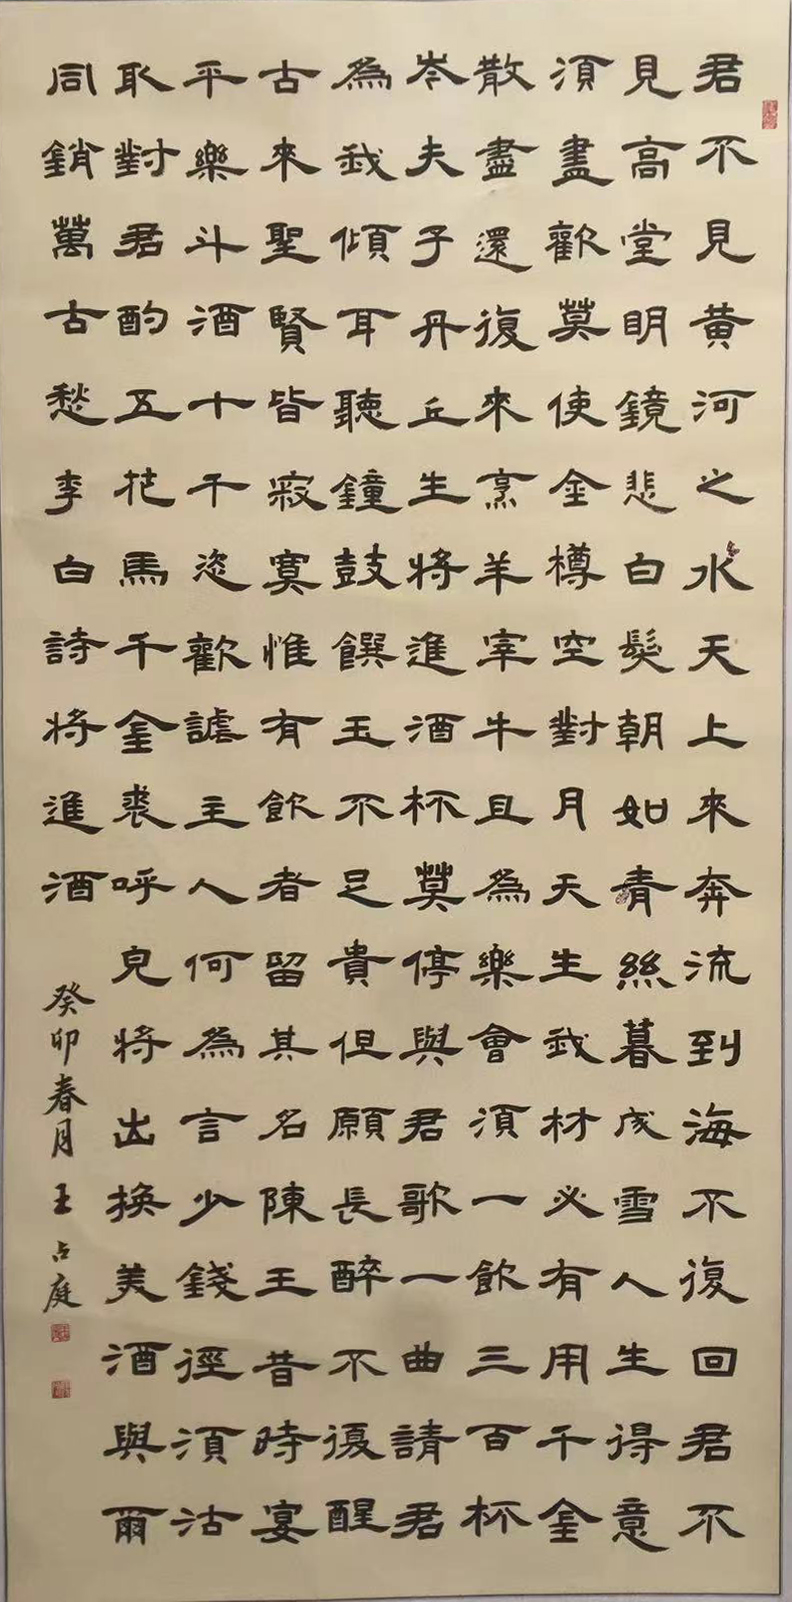 君不見黄河之水天上來奔流到海不復回君不
見高堂眀鏡悲白髮朝如青絲暮成雪人生得意
須盡歡莫使金樽空對月天生我材必有用千金
散盡還復來烹羊宰牛且為樂會須一飲三百杯
岑夫子丹丘生將進酒杯莫停與君歌一曲請君
為我傾耳聽鐘鼓饌玉不足貴但願長醉不復醒
古來聖賢皆寂寞惟有飲者留其名陳王昔時宴
平樂斗酒十千恣歡謔主人何為言少錢徑須沽
取對君酌五花馬千金裘呼兒將出換美酒與爾
同銷萬古愁李白詩將進酒
癸卯春月王占庭